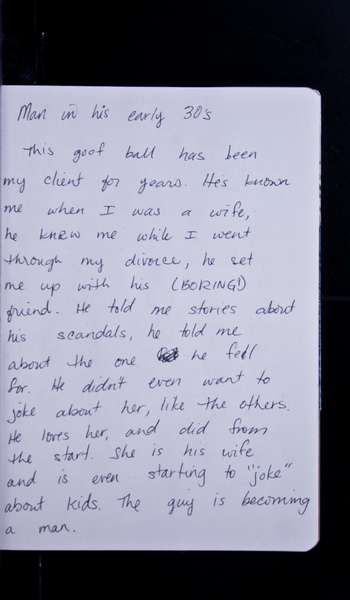 Man in his early 30's
This goof ball has been
my client for years. He's known
me when I was a wife,
he knew me while I went
through my divorce, he set
me up with his (BORING!)
friend. He told me stories about
his scandals, he told me
about the one he fell
for. He didn't even want to
joke about her, like the others.
He loves her, and did from
the start. She is his wife
and is even starting to "joke"
about kids. The guy is becoming
a man.